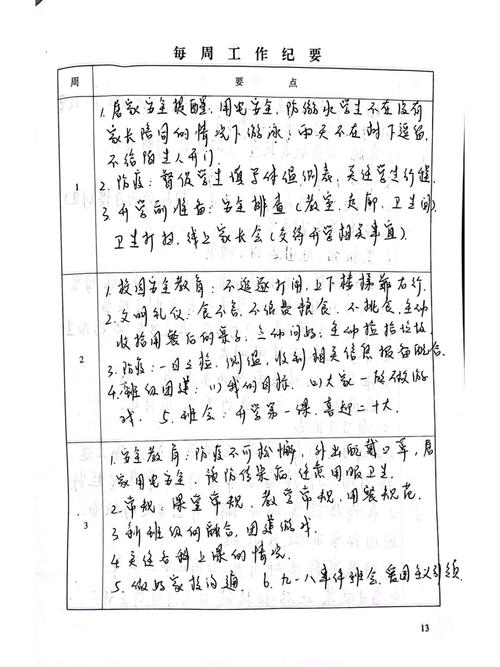 每周工作纪要
周 要点
1
1. 居家安全提醒：用电安全，防溺水学生不在没有
家长陪同的情况下游泳；雨天不在树下逗留，
不给陌生人开门。
2. 防疫：督促学生填写体温测表，关注学生行程
3. 开学前准备：安全排查（教室、走廊、卫生间）
卫生打扫，线上家长会（交待开学相关事宜）
2
1. 校园安全教育：不追逐打闹，上下楼梯靠右行
2. 文明礼仪：食不言，不浪费粮食，不挑食，主动
收拾用餐后的桌子，主动问好；主动捡拾垃圾
3. 防疫：一日三检，测温，收到相关信息报备配合。
4. 班级团建：(1) 我的目标 (2) 大家一起做游
戏 5. 班会：开学第一课，喜迎二十大
3
1. 安全教育：防疫不可松懈，外出配戴口罩，居
家用电安全，预防传染病，注意用眼卫生。
2. 常规：课堂常规，教学常规，用餐规范
3. 新班级的融合，团建游戏
4. 关注各科上课的情况
5. 做好家校沟通 6. 九一八事件班会，爱国主义引领
13